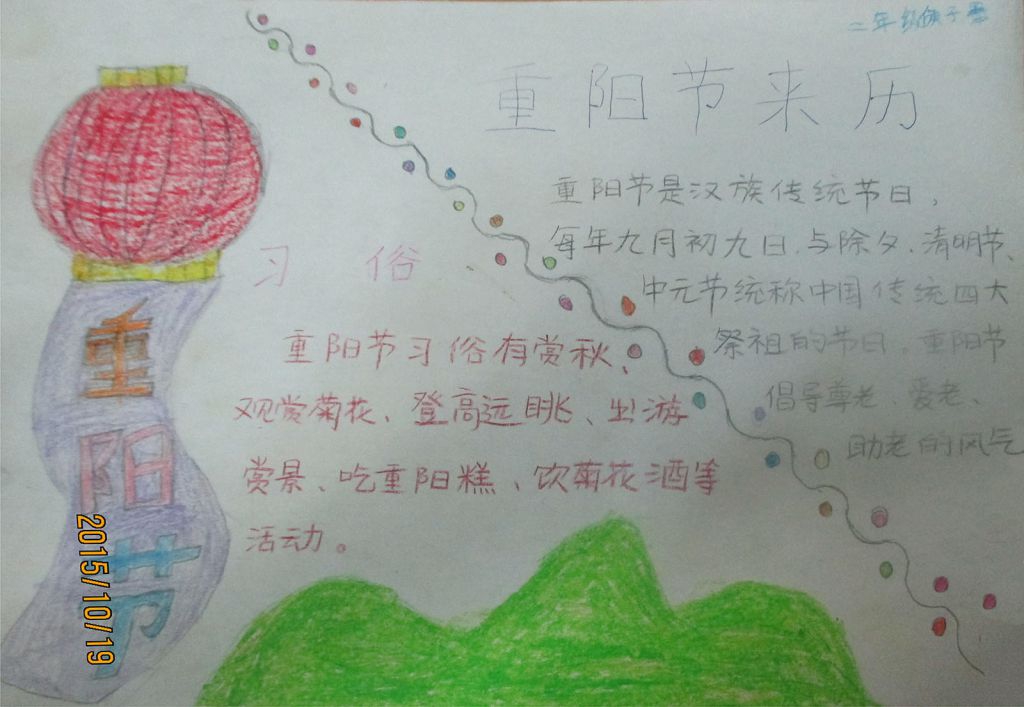 二年级
重阳节来历
重阳节是汉族传统节日，
每年九月初九日.与除夕.清明节、
中元节统称中国传统四大
祭祖的节日.重阳节
倡导尊老 爱老、
助老的风气
习 俗
重阳节习俗有赏秋、
观赏菊花、登高远眺、出游
赏景、吃重阳糕、饮菊花酒等
活动。
重
阳
节
2015/10/19